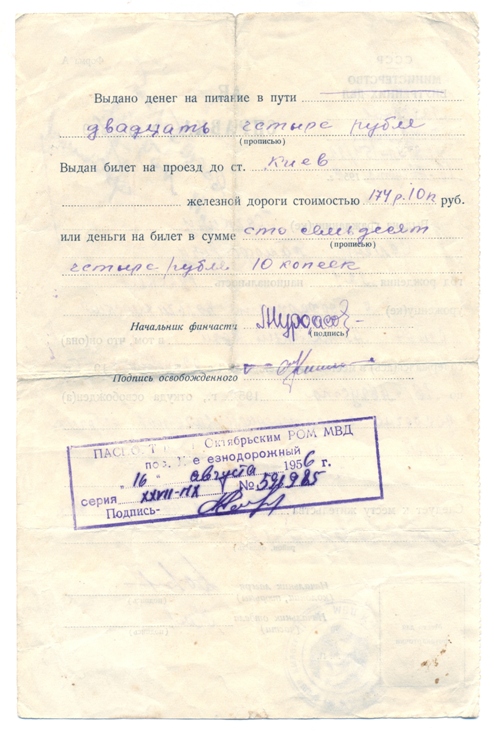 Выдано денег на питание в пути
двадцать четыре рубля
(прописью)
Выдан билет на проезд до ст. Киев
железной дороги стоимостью 174 р. 10 п руб.
или деньги на билет в сумме сто семьдесят
(прописью)
четыре рубля 10 копеек
Начальник финчасти
(подпись)
Подпись освобожденного
ПАСПОРТ Октябрьским РОМ МВД
езнодорожный
" 16 " августа 1956 г.
серия XXVII-ПХ № 591985
Подпись-